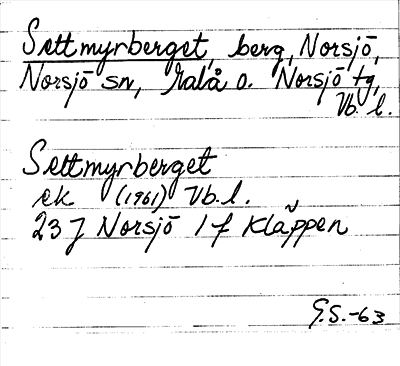 Settmyrberget, berg, Norsjö,
Norsjö sn, Malå o. Norsjö tg,
Vb. l.
Settmyrberget
ek (1961) Vb.l.
23 J Norsjö 1 f Kläppen
G.S.-63